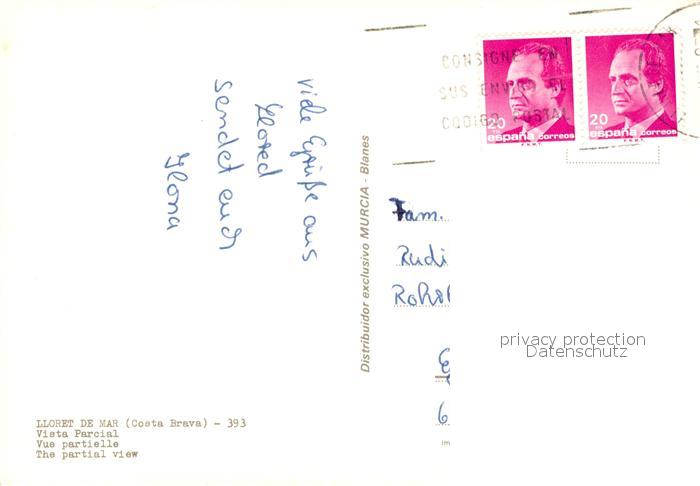 CONSIGNE EN
SUS ENVIOS EL
CODIGO POSTAL
20 20
españa correos españa correos
F.N.M.T. F.N.M.T.
viele Grüße aus
Lloret
sendet euch
Ilona
Distribuidor exclusivo MURCIA - Blanes
Fam.
Rudi
privacy protection
Datenschutz
6
Im
LLORET DE MAR (Costa Brava) - 393
Vista Parcial
Vue partielle
The partial view